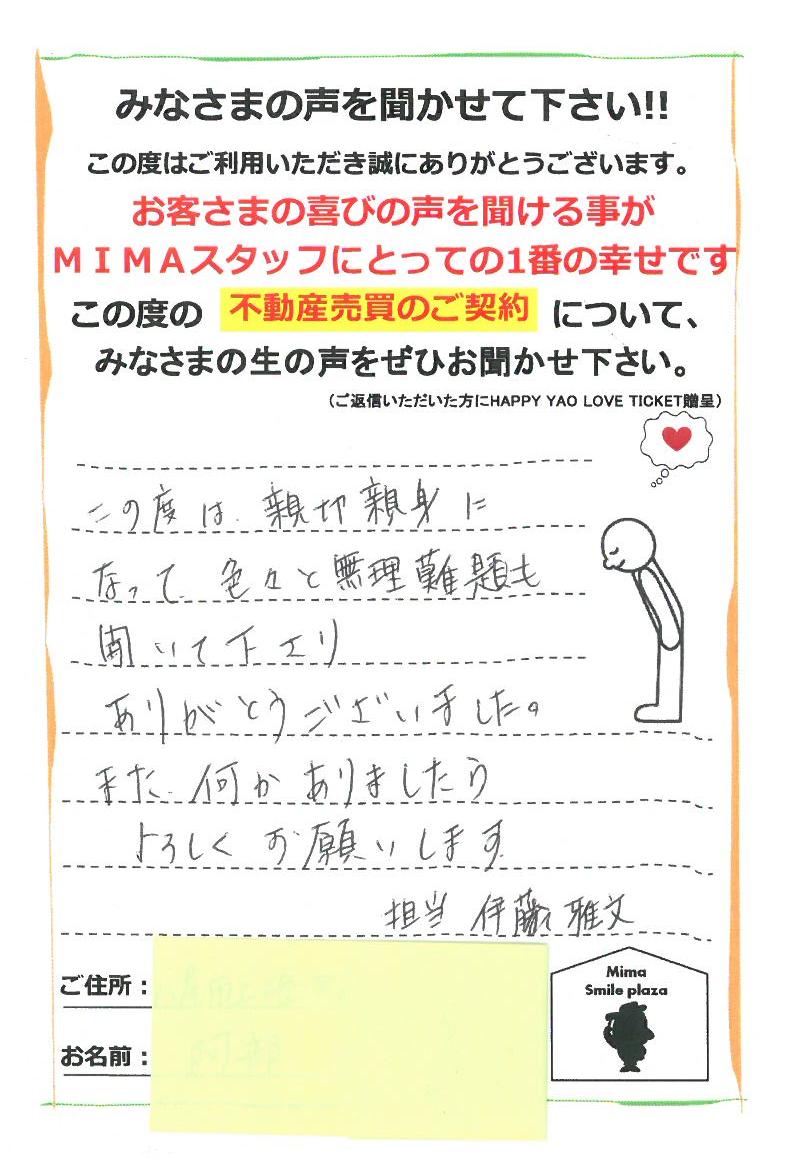 みなさまの声を聞かせて下さい!!
この度はご利用いただき誠にありがとうございます。
お客さまの喜びの声を聞ける事が
ＭＩＭＡスタッフにとっての1番の幸せです
この度の 不動産売買のご契約 について、
みなさまの生の声をぜひお聞かせ下さい。
（ご返信いただいた方にHAPPY YAO LOVE TICKET贈呈）
この度は、親切親身に
なって 色々と無理難題も
聞いて下さり
ありがとうございました。
また、何かありましたら
よろしくお願いします
担当 伊藤 雅文
ご住所：
お名前：
Mima
Smile plaza